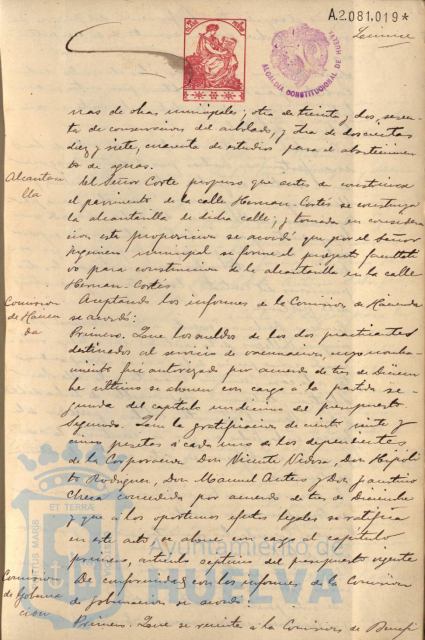 A.2.081.019*
ALCALDIA CONSTITUCIONAL DE HUELVA
nas de obras municipales; otra de treinta y dos, seten-
ta de conservacion del arbolado, y otra de doscientas
diez y siete, cuarenta de estudios para el abastecimien-
to de aguas.
Alcantari-
lla
El Señor Corte propuso que antes de construirse
el pavimento de la calle Hernan-Cortés se construya
la alcantarilla de dicha calle; y tomada en considera-
cion esta proposicion se acordó que por el Señor
municipal se forme el presupto facultati
vo para construccion de la alcantarilla en la calle
Hernan-Cortés
Comision
de Hacien
da
Aceptando los informes de la Comision de Hacienda
se acordó:
Primero. Que los sueldos de los dos practicantes
destinados al servicio de vacunacion, cuyo nombra-
miento fue autorizado por acuerdo de tres de Diciem
bre ultimo se abonen con cargo a la partida se-
gunda del capitulo undecimo del presupuesto
Segundo. Que la gratificacion de ciento veinte y
cinco pesetas á cada uno de los dependientes
de la Corporacion Don Vicente Don Hipoli
to Rodriguez, Don Manuel y Don Faustino
Checa concedida por acuerdo de tres de Diciembre
y que á los oportunos efectos legales se ratifica
en este acto se abone con cargo al capitulo
primero, articulo septimo del presupuesto vigente
Comision
de Goberna
cion
De conformidad con los informes de la Comision
de Gobernacion se acordó:
Primero. Que se remita a la Comision de Benefi
ET TERRÆ
PORTUS MARIS
Ayuntamiento de
HUELVA